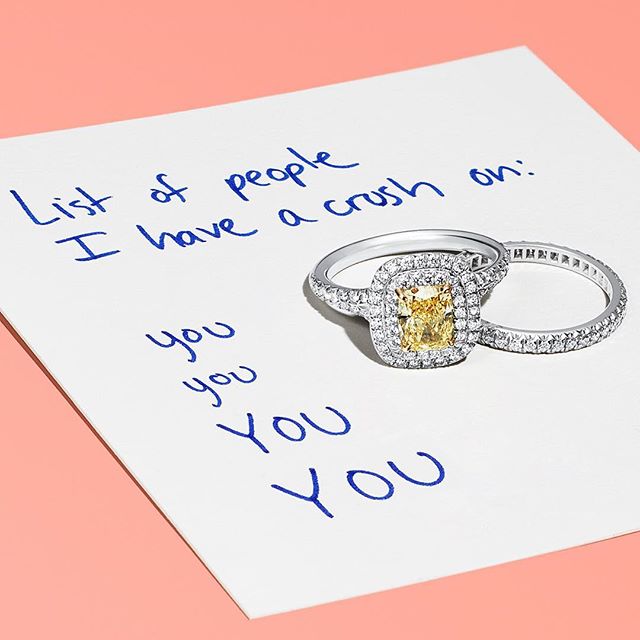 List of people
I have a crush on:
you
you
YOU
YOU